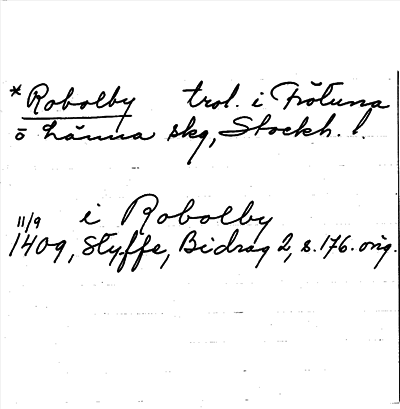 * Robolby trol. i Frötuna
o Länna skg, Stockh. l.
11/9 i Robolby
1409, Styffe, Bidrag 2, s. 176. orig.